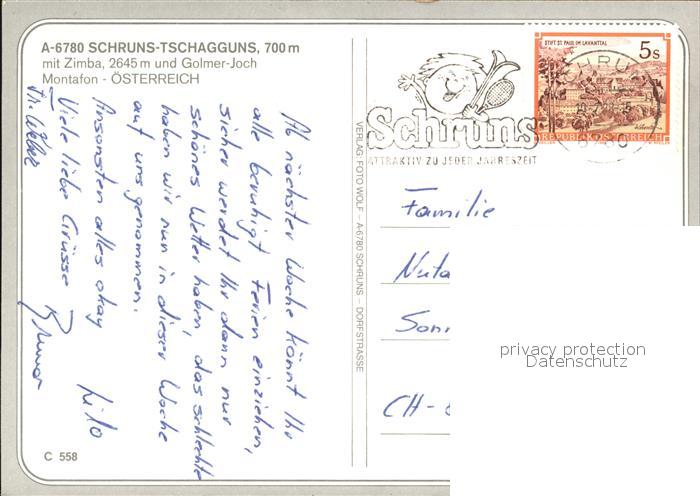 A-6780 SCHRUNS-TSCHAGGUNS, 700 m
mit Zimba, 2645 m und Golmer-Joch
Montafon - ÖSTERREICH
Ab nächster Woche könnt Ihr
alle beruhigt Ferien einziehen,
sicher werdet Ihr dann nur
schönes Wetter haben, das schlechte
haben wir nun in dieser Woche
auf uns genommen.
Ansonsten alles okay
Viele liebe Grüsse
Lilo
C 558
VERLAG: FOTO WOLF - A-6780 SCHRUNS - DORFSTRASSE
Schruns
ATTRAKTIV ZU JEDER JAHRESZEIT
STIFT ST. PAUL IM LAVANTTAL
5 s
REPUBLIK ÖSTERREICH
SCHRUNS
6780
Familie
Nuta
Sonn
CH-
privacy protection
Datenschutz